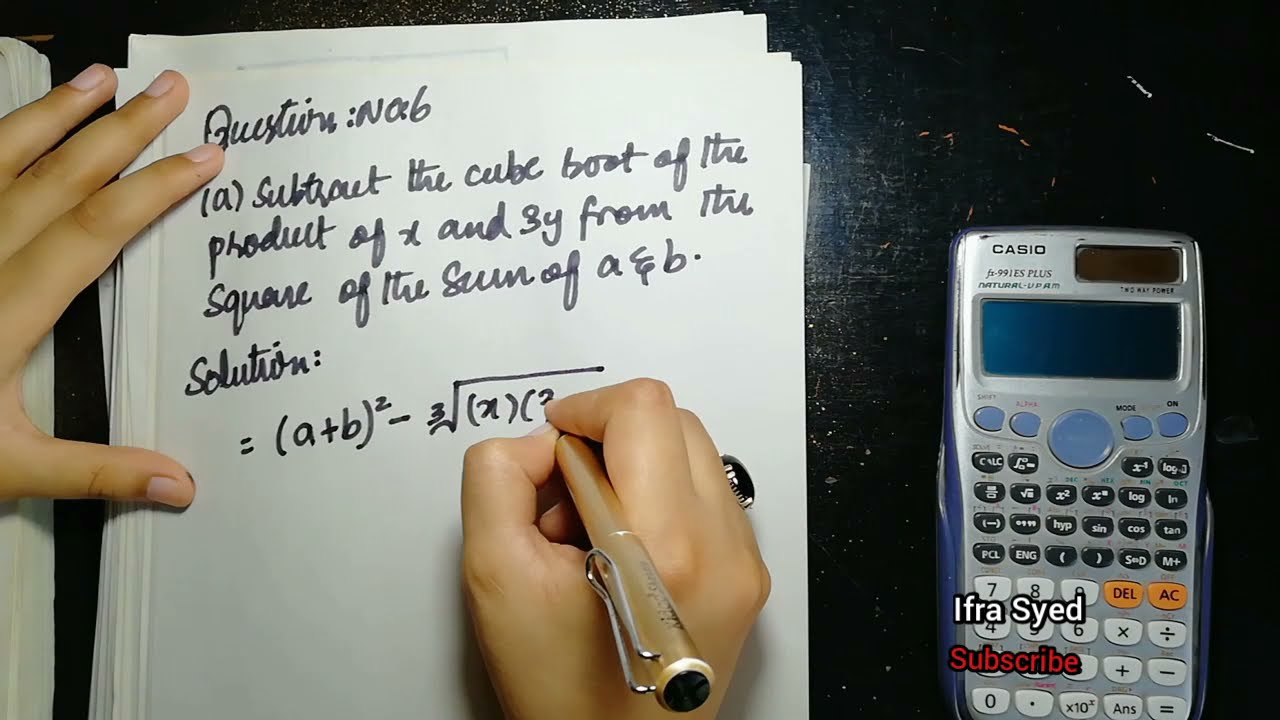 Question: No:6
(a) Subtract the cube root of the
product of x and 3y from the
square of the sum of a & b.
Solution:
= (a+b)² - ∛(x)(3
CASIO
fx-991ES PLUS
NATURAL-V.P.A.M.
TWO WAY POWER
SHIFT
ALPHA
MODE
ON
CALC
x⁻¹
x²
log
ln
(−)
hyp
sin
cos
tan
PCL
ENG
(
)
S⇔D
M+
7 8 DEL AC
Ifra Syed
4 5 6 × ÷
Subscribe
+ −
0 • ×10ˣ Ans =